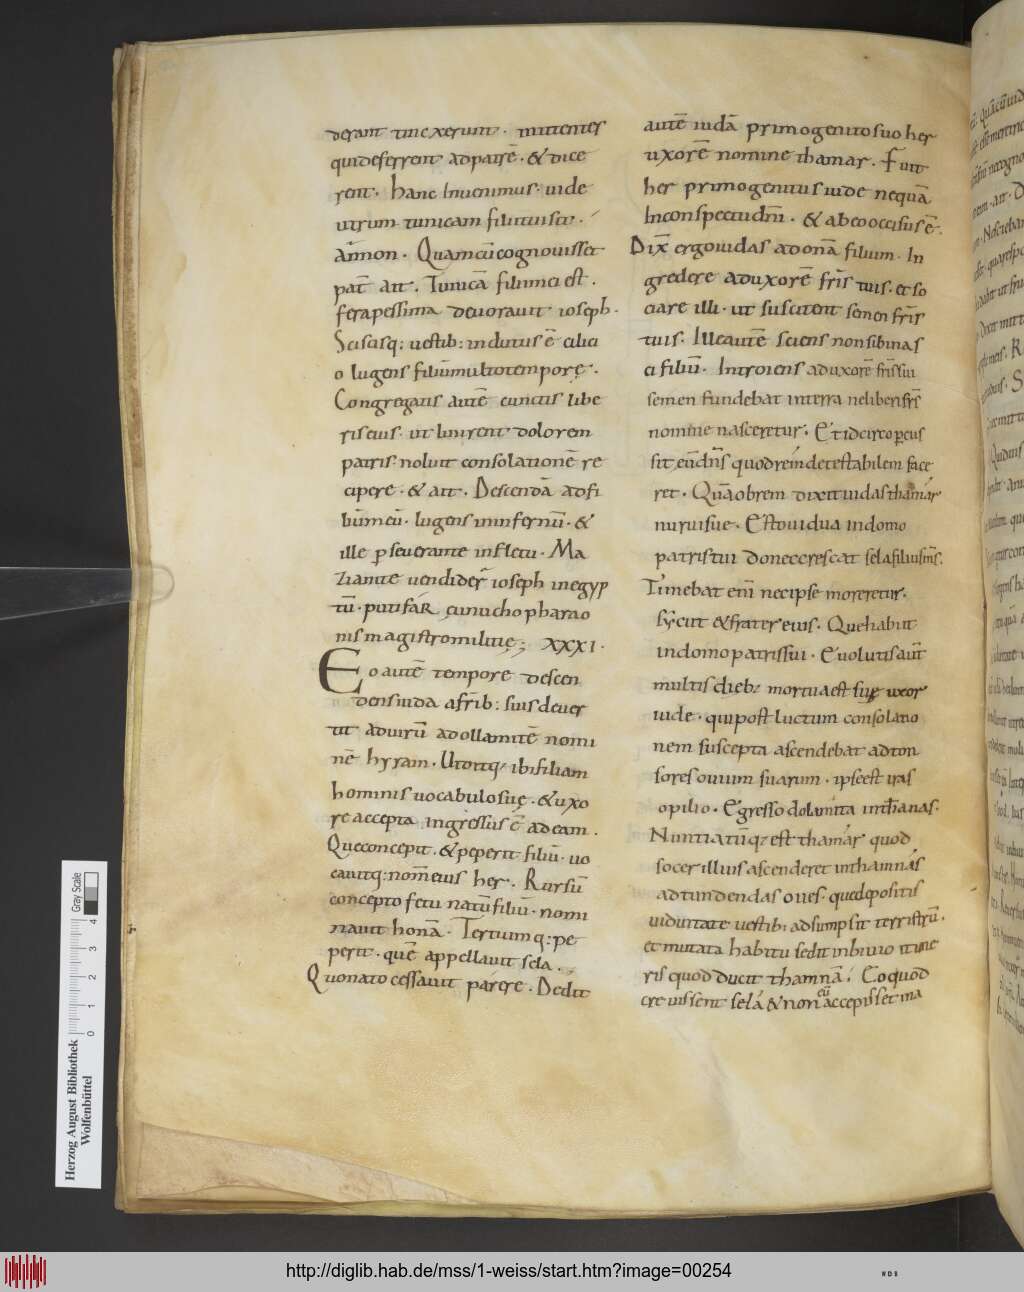 derant tinexerunt. mittentes
qui deferrent ad patrē. & dice
rent. hanc Inuenimus. uide
utrum tunicam filii tui sit.
annon. Quam cū cognouisset
pat̄ ait. Tunicā filii mei est.
fera pessima deuorauit ioseph.
Scisisq: uestib: indutus ē cilici
o lugens filiū multo tempore.
Congregatis autē cunctis libe
ris eius. ut linirent dolorem
patris. noluit consolationē re
cipere. & ait. Descendā ad fi
liū meū. lugens in infernū. &
ille pseuerante in fletu. Ma
zianite uendider̄ ioseph in egyp
tū. putifar, eunucho pharao
nis magistro militię; XXXI.
Eo autē tempore descen
dens iuda a fr̄ib: suis deuer
tit ad uirū adollamitē nomi
nē hyram. Uiditq; ibi filiam
hominis uocabulo suę. & uxo
re accepta ingressus ē ad eam.
Que concepit. & peperit filiū. uo
cauitq: nom̄ eius her. Rursū
concepto fetu natū filiū. nomi
nauit honā. Tertium q: pe
perit. quē appellauit sela.
Quo nato cessauit parere. Dedit
autē iudā primogenito suo her
uxorē nomine thamar. Fuit
her primogenitus iude nequā
In conspectu dn̄i. & ab eo occisus ē.
Dix̄ ergo iudas ad onā filium. In
gredere ad uxorē fr̄is tuis. et so
ciare illi. ut suscitent semen fr̄is
tuis. Ille autē sciens non sibi nas
ci filiū. Introiens ad uxorē fr̄is sui
semen fundebat in terra ne liberi fr̄s
nomine nasceretur. Et idcirco pcus
sit eūdn̄s quod rem detestabilem face
ret. Quā obrem dixit iudas thamar
nurui sue. Esto uidua in domo
patris tui donec crescat sela filius m̄s.
Timebat eni necipse moreretur.
sycut & frater eius. Que habiit
in domo patris sui. Euolutis aūt
multis dieb; mortua est suę uxor
iude. qui post luctum consolatio
nem suscepta ascendebat ad ton
sores ouium suarum. ipse est iras
opilio. Egresso dolamita in thanas.
Nuntiatūq; est thamar quod
socer illius ascenderet in thamnas
ad tundendas oues. que depositis
uiduitate uestib; adsumpsit terristrū.
et mutata habitu sedit in biuio itine
ris quod ducit thamnā. Eo quod
creuissent sela & non eū accepisset ma
Herzog August Bibliothek
Wolfenbüttel
0 1 2 3 4
Gray Scale
http://diglib.hab.de/mss/1-weiss/start.htm?image=00254